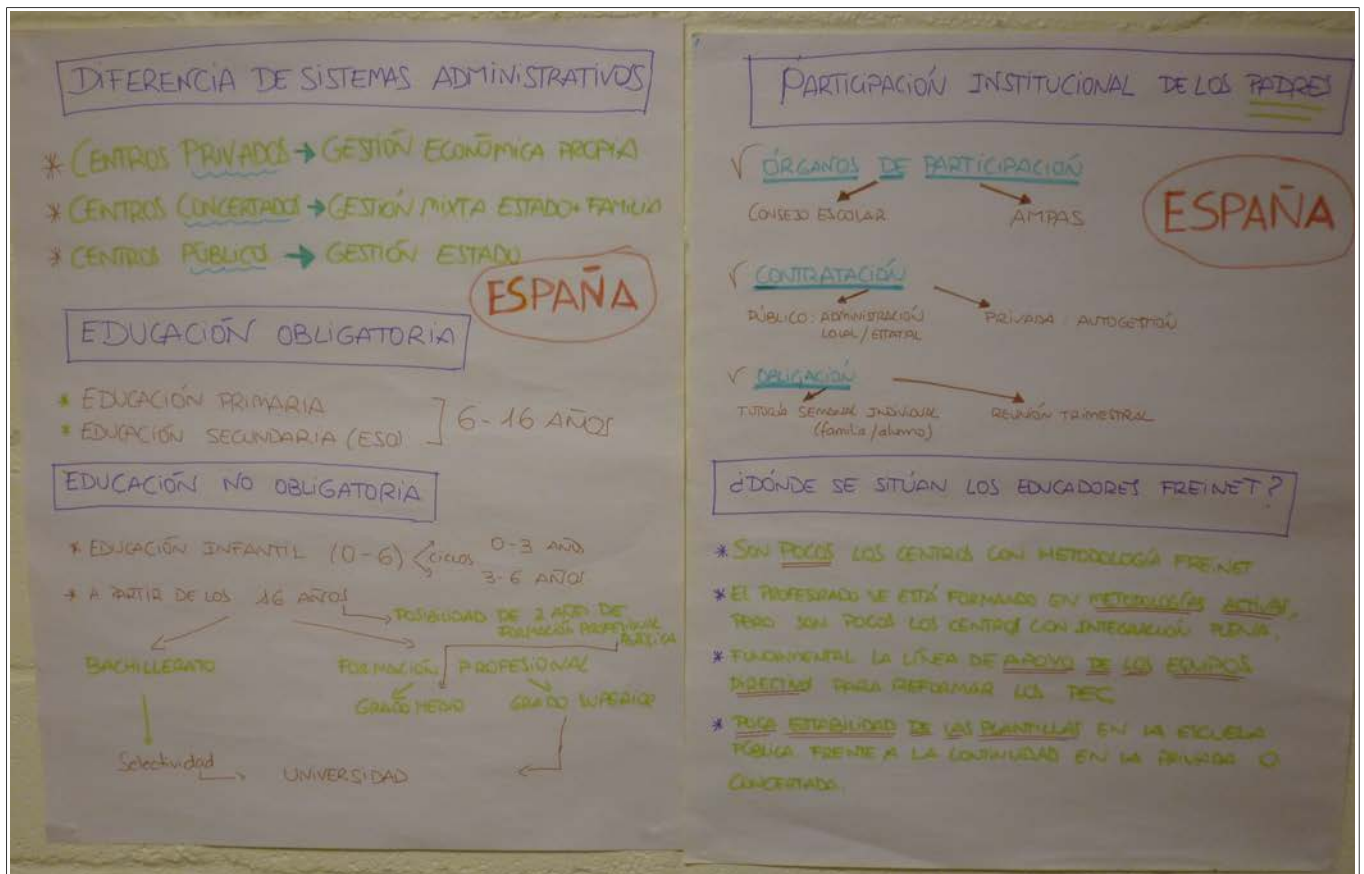 DIFERENCIA DE SISTEMAS ADMINISTRATIVOS
* CENTROS PRIVADOS → GESTIÓN ECONÓMICA PROPIA
* CENTROS CONCERTADOS → GESTIÓN MIXTA ESTADO + FAMILIA
* CENTROS PÚBLICOS → GESTIÓN ESTADO
ESPAÑA
EDUCACIÓN OBLIGATORIA
* EDUCACIÓN PRIMARIA
* EDUCACIÓN SECUNDARIA (ESO)
6-16 AÑOS
EDUCACIÓN NO OBLIGATORIA
* EDUCACIÓN INFANTIL (0-6) CICLOS
0-3 AÑOS
3-6 AÑOS
* A PARTIR DE LOS 16 AÑOS
POSIBILIDAD DE 2 AÑOS DE
FORMACIÓN PROFESIONAL
BÁSICA
BACHILLERATO
FORMACIÓN PROFESIONAL
GRADO MEDIO
GRADO SUPERIOR
Selectividad
UNIVERSIDAD
PARTICIPACIÓN INSTITUCIONAL DE LOS PADRES
√ ÓRGANOS DE PARTICIPACIÓN
CONSEJO ESCOLAR
AMPAS
ESPAÑA
√ CONTRATACIÓN
PÚBLICO: ADMINISTRACIÓN
LOCAL/ESTATAL
PRIVADA: AUTOGESTIÓN
√ OBLIGACIÓN
TUTORÍA SEMANAL INDIVIDUAL
(familia/alumno)
REUNIÓN TRIMESTRAL
¿DÓNDE SE SITÚAN LOS EDUCADORES FREINET?
* SON POCOS LOS CENTROS CON METODOLOGÍA FREINET
* EL PROFESORADO SE ESTÁ FORMANDO EN METODOLOGÍAS ACTIVAS,
PERO SON POCOS LOS CENTROS CON INTEGRACIÓN PLENA.
* FUNDAMENTAL LA LÍNEA DE APOYO DE LOS EQUIPOS
DIRECTIVOS PARA REFORMAR LOS PEC
* POCA ESTABILIDAD DE LAS PLANTILLAS EN LA ESCUELA
PÚBLICA FRENTE A LA CONTINUIDAD EN LA PRIVADA O
CONCERTADA.